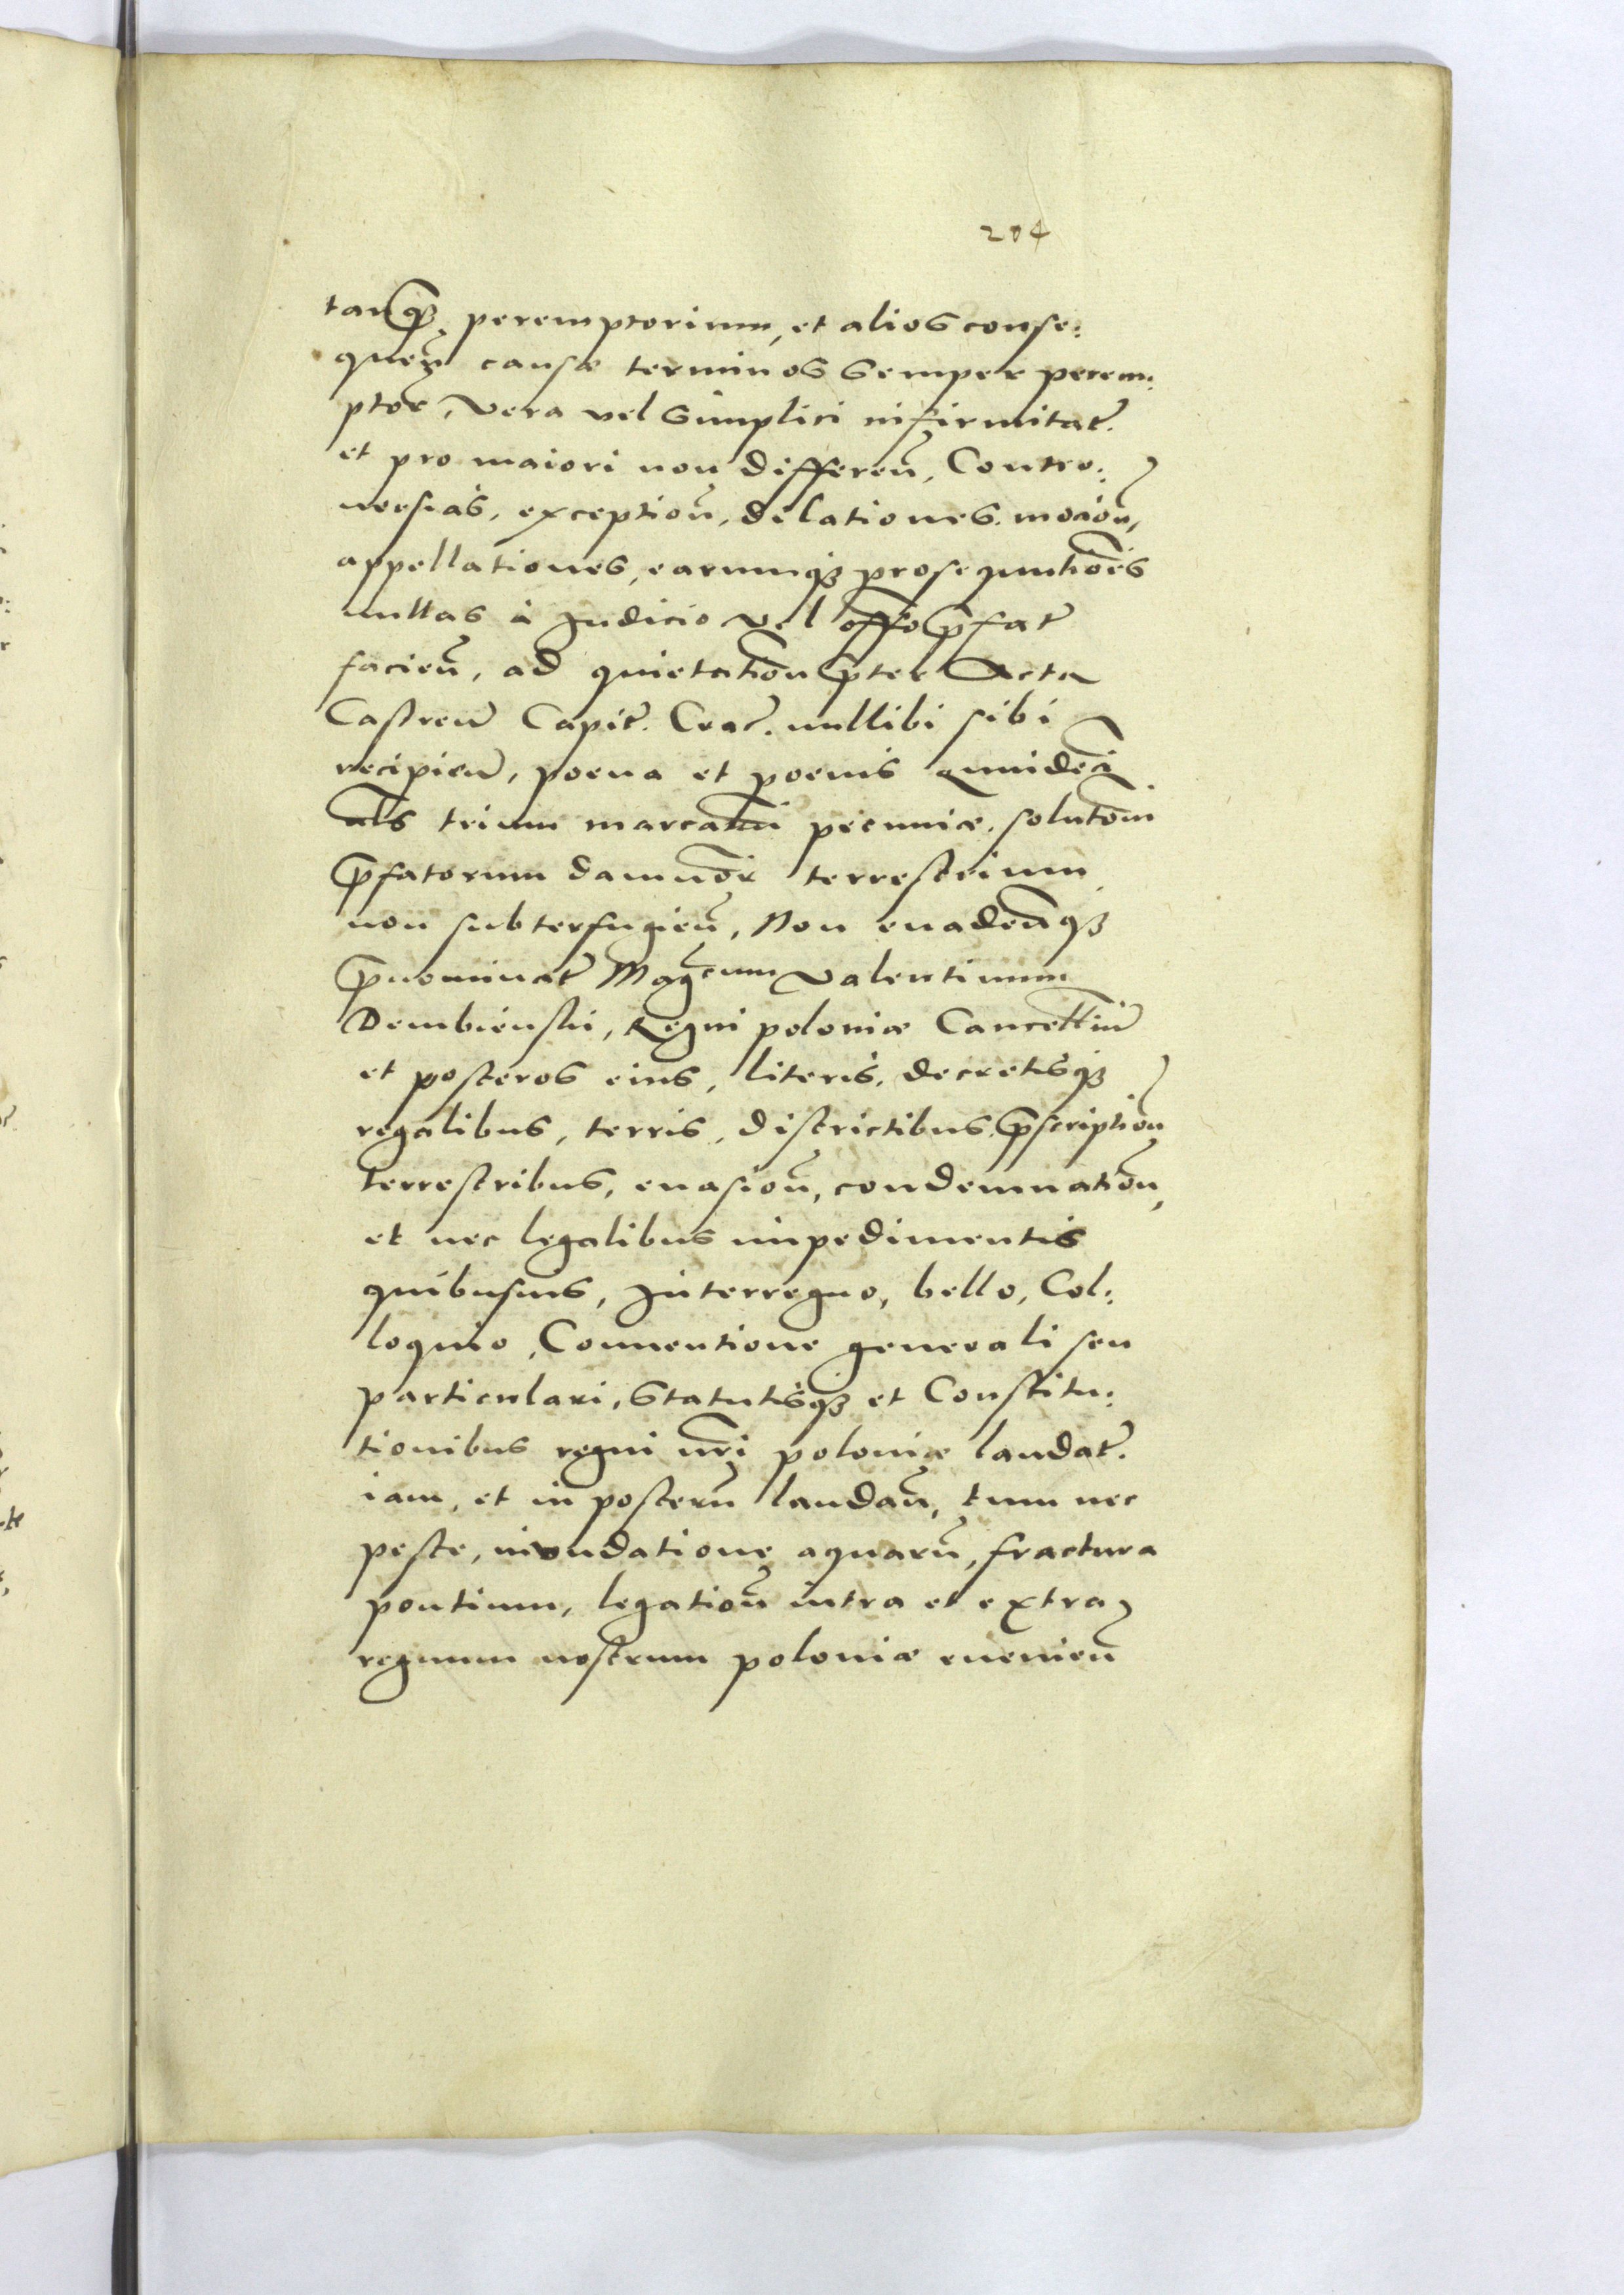 204
tanq̃ȝ peremptorium, et alios conse:
queñ causæ terminos semper perem:
ptor̃, vera vel simplici infirmitat̃.
et pro maiori non differeñ, Contro:
uersias, exceptioñ, dilationes, motioñ,
appellationes, earumqȝ prosequutiões
nullas à Judicio vel offo p̃fat̃
facieñ, ad quietatioñ p̃ter Acta
Castreñ Capit̃. Crac̃. nullibi sibi
recipieñ, poena et poenis quindeci
als trium marcarũ pecuniæ, solutõni
p̃fatorum damnõr terrestrium
non subterfugieñ, Non euadeñqȝ
p̃nominat̃ Mag̃cum Valentinum
Dembienski, Regni poloniæ Cancelliũ
et posteros eius, literis, decretisqȝ
regalibus, terris, districtibus, p̃scriptioñ
terrestribus, euasioñ, condemnatioñ,
et nec legalibus impedimentis
quibusuis, Interregno, bello, Col:
loquio, Conuentione generali seu
particulari, Statutisqȝ et Constitu:
tionibus regni nr̃i poloniæ laudat̃.
iam, et in posterũ laudañ, tum nec
peste, inundatione aquarũ, fractura
pontium, legatioñ intra et extra
regnum nostrum poloniæ euenieñ